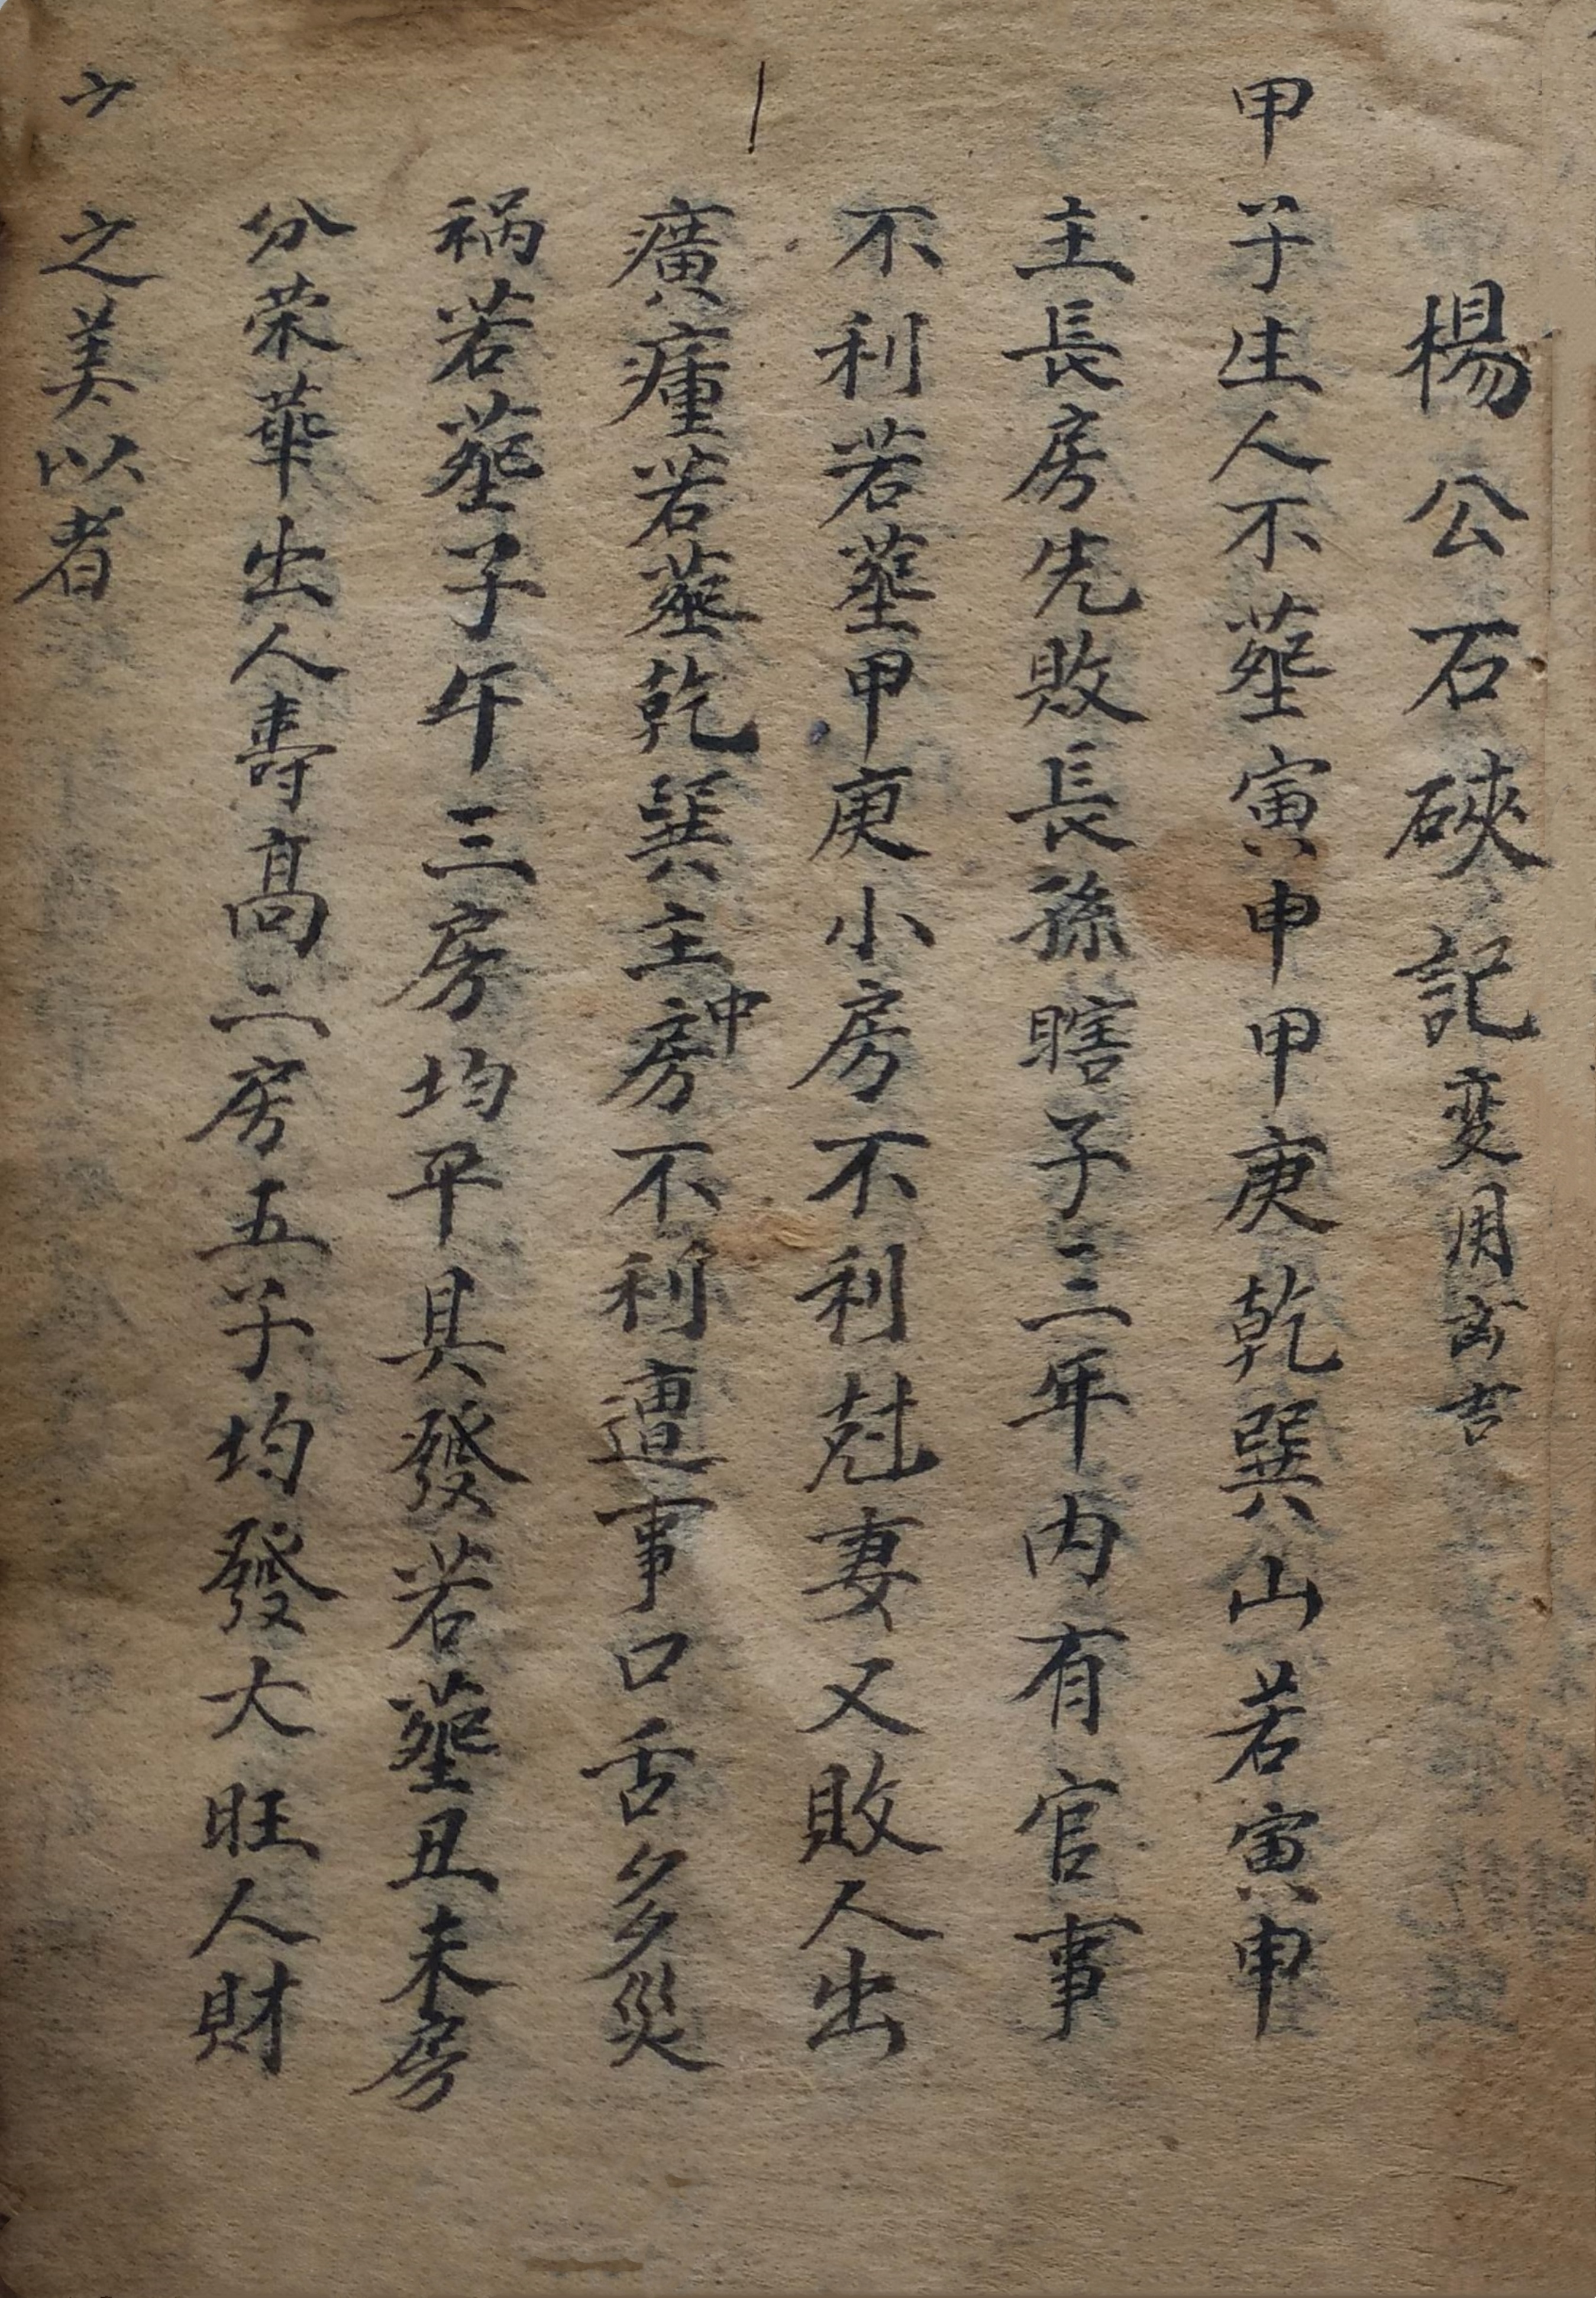 楊公石硤記変用凶吉
甲子生人不葬寅申甲庚乾巽山若寅申
主長房先敗長孫瞎子三年内有官事
不利若葬甲庚小房不利尅妻又敗人出
癀瘇若葬乾巽主中房不利遭事口舌多災
祸若葬子午三房均平具發若葬丑未房
分荣華出人壽髙二房五子均發大旺人財
之美以者